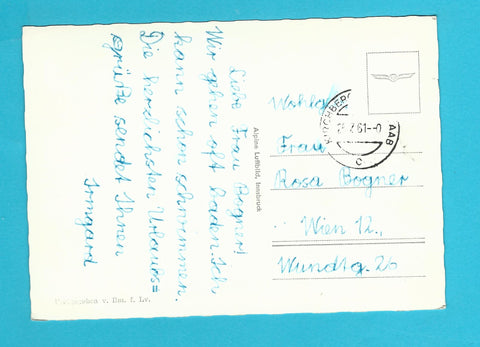 Liebe Frau Bogner!
Wir gehen oft baden. Ich
kann schon schwimmen.
Die herzlichsten Urlaubs=
grüße sendet Ihnen
Irmgard
Alpine Luftbild, Innsbruck
Frau
Rosa Bogner
Wien 12.,
Wundtg. 26
KIRCHBERG
61
AAB
c
v. Bm. f. Lv.